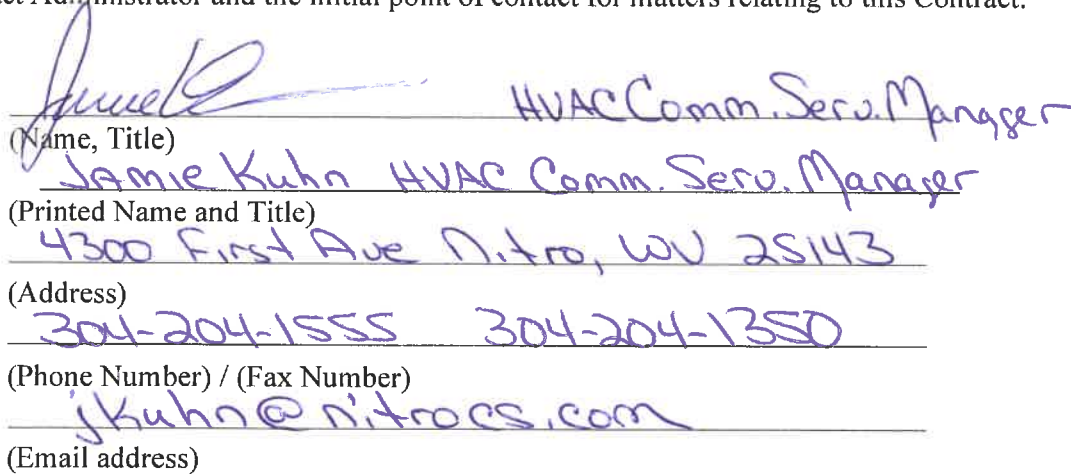 ct Administrator and the initial point of contact for matters relating to this Contract.
HVAC Comm. Serv. Manager
(Name, Title)
Jamie Kuhn HVAC Comm. Serv. Manager
(Printed Name and Title)
4300 First Ave Nitro, WV 25143
(Address)
304-204-1555 304-204-1350
(Phone Number) / (Fax Number)
jkuhn@nitrocs.com
(Email address)